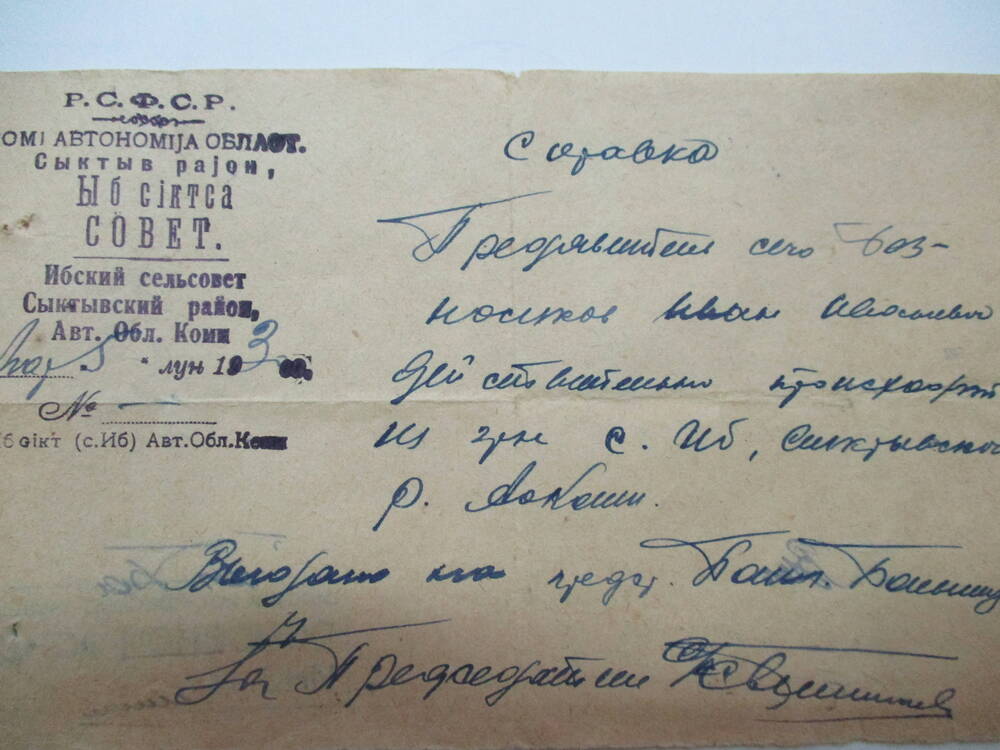 Р.С.Ф.С.Р.
ОМІ АВТОНОМІЈА ОБЛАСТ.
Сыктыв рајон,
Ыб сіктса
СОВЕТ.
Ибский сельсовет
Сыктывский район,
Авт. Обл. Коми
5 " луԋ 193
№ —
б сікт (с.Иб) Авт.Обл.Коми
Справка
Предявител сего Воз-
Иван
действительно происходит
из гр-н с. Иб, Сыктывского
р. АоКоми.
Выдано на предъ.
За Председатель